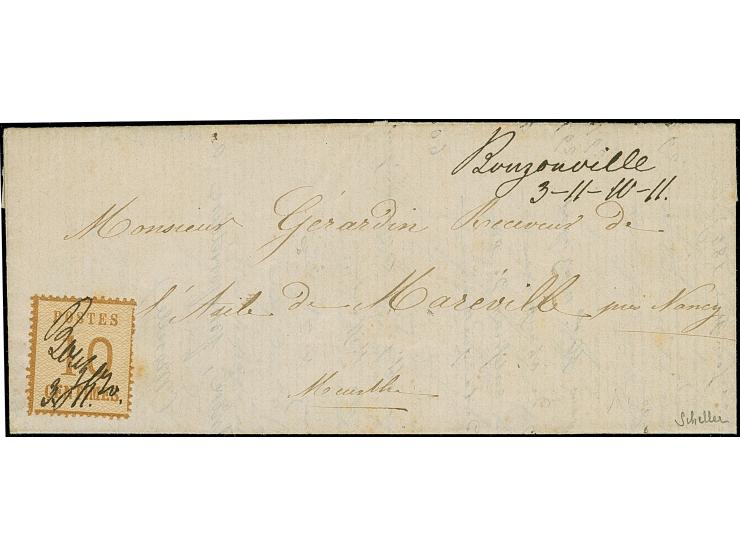 Bouzonville
3-11-10-11.
Monsieur Gérardin Receveur de
l'Asile de Maréville près Nancy
Meurthe
POSTES
10
3/11.
Scheller